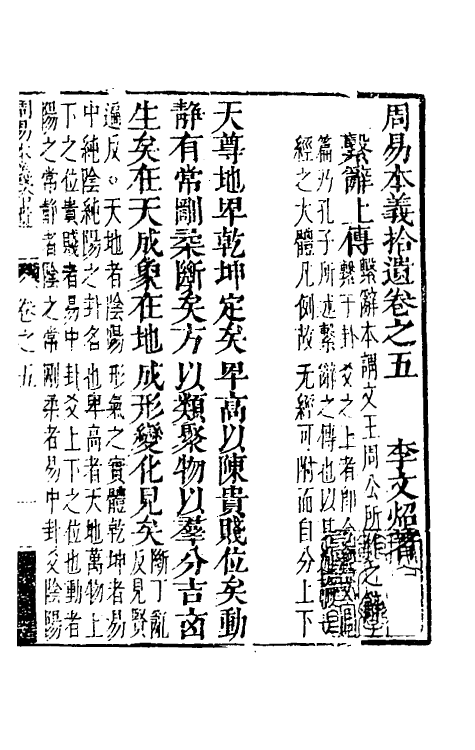 周易本義拾遺卷之五 李文炤
繫辭上傳 繫辭本謂文王周公所作之辭
繫于卦爻之上者即今經文此
篇乃孔子所述繫辭之傳也以其通論一
經之大體凡例故无經可附而自分上下
天尊地卑乾坤定矣卑高以陳貴賤位矣動
靜有常剛柔斷矣方以類聚物以羣分吉凶
生矣在天成象在地成形變化見矣 斷丁亂反見賢
遍反○天地者陰陽形氣之實體乾坤者易
中純陰純陽之卦名也卑高者天地萬物上
下之位貴賤者易中卦爻上下之位也動者
陽之常靜者陰之常剛柔者易中卦爻陰陽
周易本義拾遺 卷之五 一